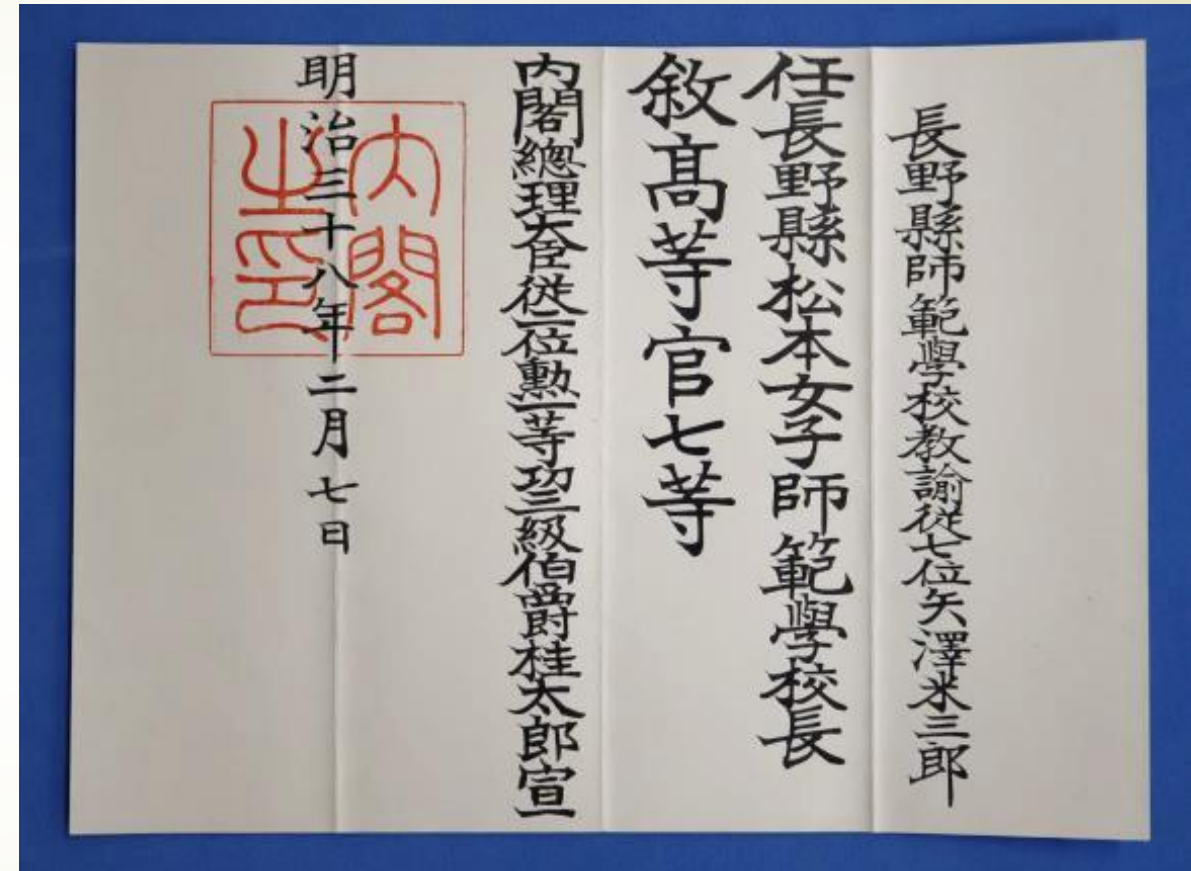 長野縣師範學校教諭從七位矢澤米三郎
任長野縣松本女子師範學校長
敘高等官七等
內閣總理大臣從二位勲一等功三級伯爵桂太郎宣
明治三十八年二月七日
內閣之印